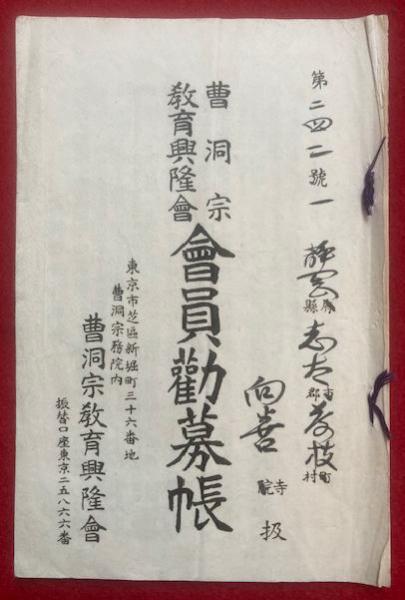 第二四二號一 靜岡府縣志太市郡藤枝町村
向善寺院 扱
曹洞宗
教育興隆會
會員勸募帳
東京市芝區新堀町三十六番地
曹洞宗務院内
曹洞宗教育興隆會
振替口座東京二五八六六番